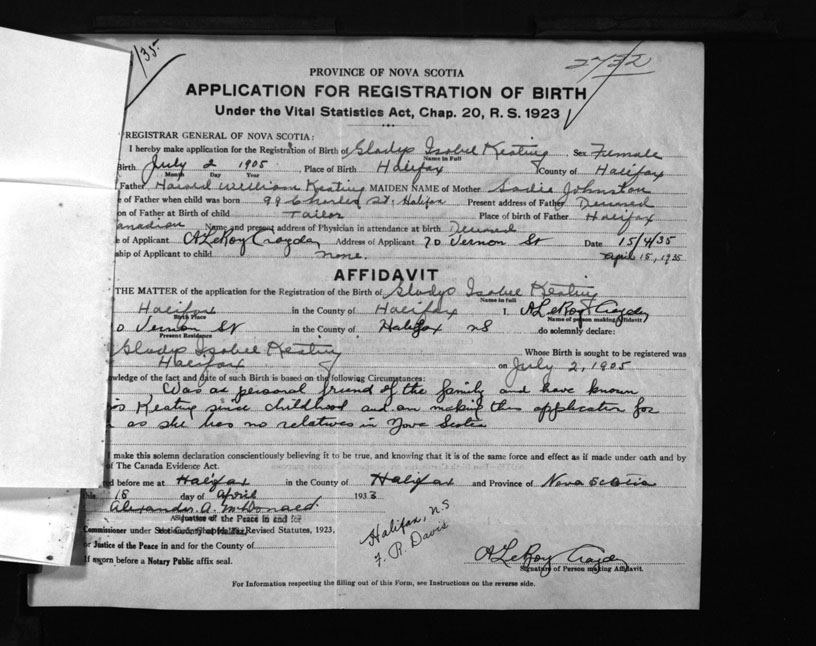 /35
2732
PROVINCE OF NOVA SCOTIA
APPLICATION FOR REGISTRATION OF BIRTH
Under the Vital Statistics Act, Chap. 20, R. S. 1923
REGISTRAR GENERAL OF NOVA SCOTIA:
I hereby make application for the Registration of Birth of Gladys Isobel Keating, Sex Female
Name in Full
Birth July 2 1905, Place of Birth Halifax County of Halifax
Month Day Year
Father Harold William Keating MAIDEN NAME of Mother Sadie Johnston
e of Father when child was born 99 Charles St. Halifax Present address of Father Deceased
on of Father at Birth of child Tailor Place of birth of Father Halifax
anadian Name and present address of Physician in attendance at birth Deceased
e of Applicant A LeRoy Address of Applicant 70 Vernon St Date 15/4/35
ship of Applicant to child none. April 15, 1935
AFFIDAVIT
THE MATTER of the application for the Registration of the Birth of Gladys Isobel Keating
Name in Full
Halifax in the County of Halifax I, A LeRoy
Birth Place Name of person making Affidavit
o Vernon St in the County of Halifax NS do solemnly declare:
Present Residence
Gladys Isobel Keating Whose Birth is sought to be registered was
Halifax on July 2, 1905
wledge of the fact and date of such Birth is based on the following Circumstances:
Was a personal friend of the family and have known
is Keating since childhood and am making this application for
as she has no relatives in Nova Scotia
make this solemn declaration conscientiously believing it to be true, and knowing that it is of the same force and effect as if made under oath and by
of The Canada Evidence Act.
ed before me at Halifax in the County of Halifax and Province of Nova Scotia
this 15 day of April 1933
Alexander A. McDonald
A Justice of the Peace in and for
Commissioner under Revised Statutes, 1923,
or Justice of the Peace in and for the County of
If sworn before a Notary Public affix seal.
Halifax, N.S
F. R. Davis
A LeRoy
Signature of Person making Affidavit.
For Information respecting the filling out of this Form, see Instructions on the reverse side.